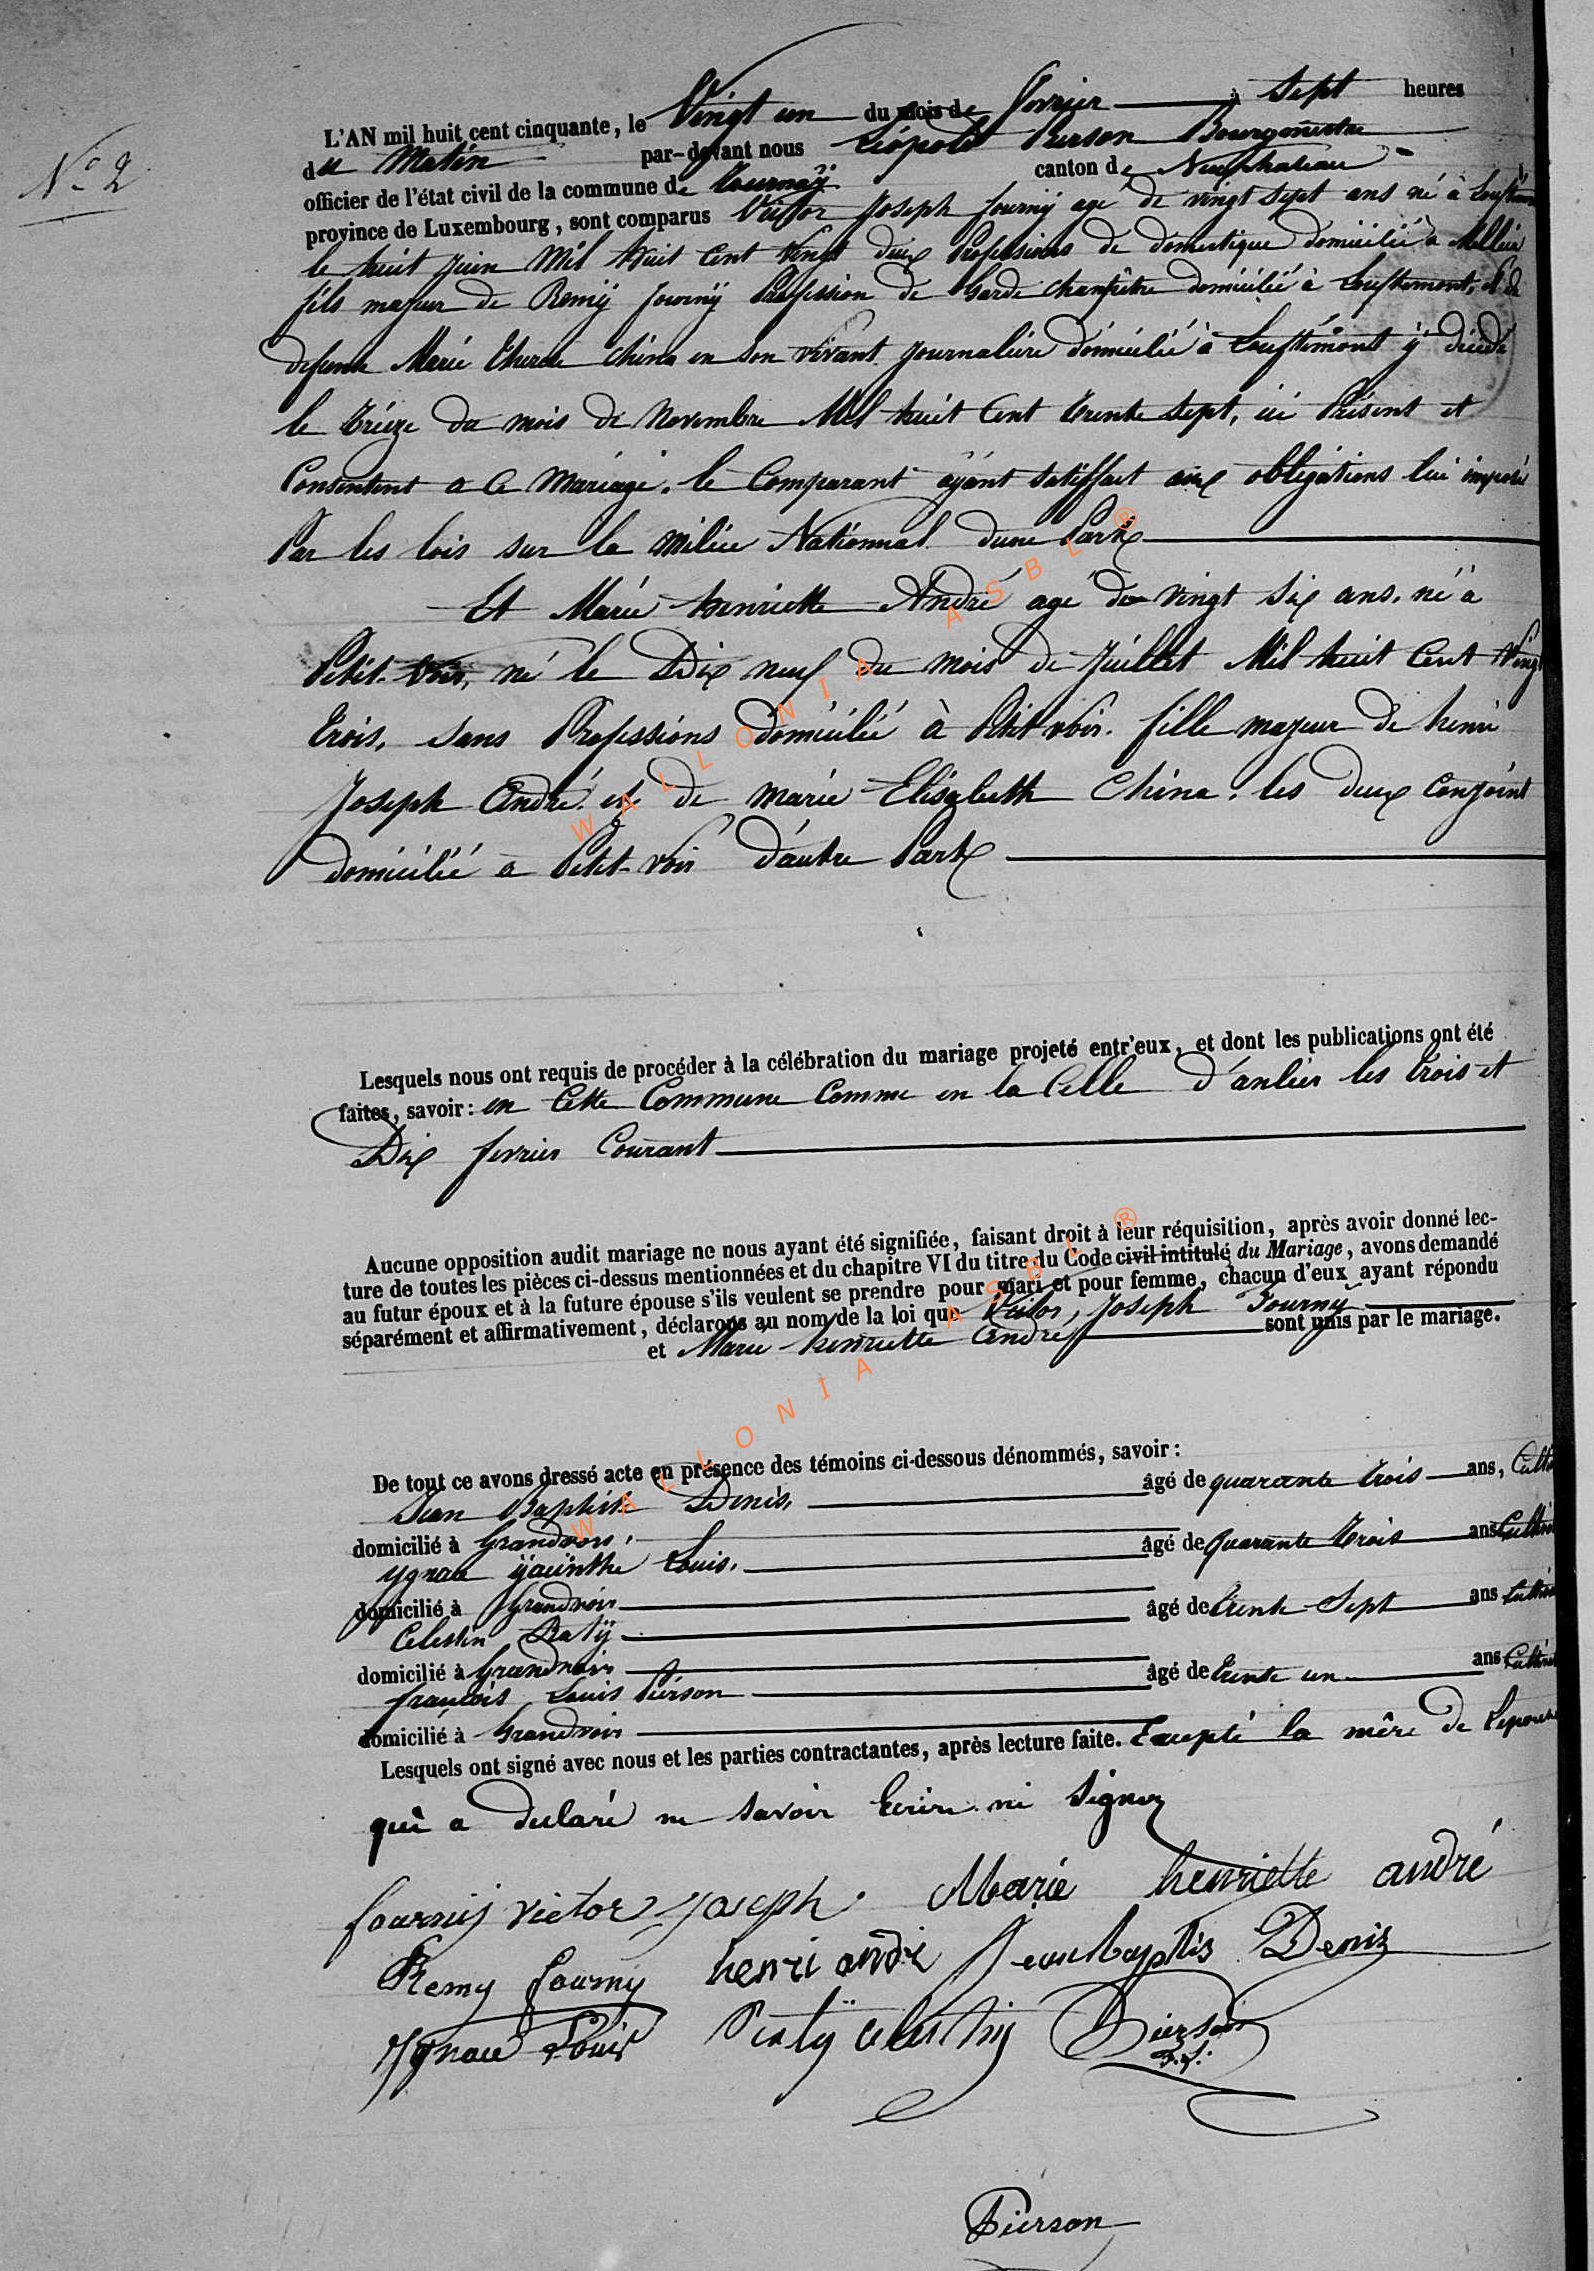 N° 2
L'AN mil huit cent cinquante, le Vingt un du mois de fevrier à Sept heures
du Matin par-devant nous Léopold Pierson Bourgmestre
officier de l'état civil de la commune de Tournay canton de Neufchateau
province de Luxembourg, sont comparus Victor Joseph fourny agé de vingt sept ans né à Louftémont
le huit juin Mil huit Cent Vingt deux Professions de domestique domicilié à Mellier
fils majeur de Remÿ fournÿ Proffession de Garde champêtre domicilié à Louftémont, et de
defunte Marie Therese China en son vivant journalière domicilié à Louftémont ÿ décédé
le treize du mois de Novembre Mil huit Cent trente Sept, ici Présent et
Consentent a ce mariage. le Comparant ayant satiffait aux obligations lui imposé
Par les lois sur la milice National dune Part
Et Marie henriette André agé de vingt six ans, né à
Petit-voir, né le Dix neuf du mois de juillet Mil huit Cent Vingt
trois, sans Professions domicilié à Petit voir. fille majeur de henri
Joseph André et de marie Elisabeth China. les deux conjoint
domicilié a Petit-voir d'autre Part
Lesquels nous ont requis de procéder à la célébration du mariage projeté entr'eux, et dont les publications ont été
faites, savoir: en Cette Commune Comme en la Celle d'anlier les trois et
Dix fevrier Courant
Aucune opposition audit mariage ne nous ayant été signifiée, faisant droit à leur réquisition, après avoir donné lec-
ture de toutes les pièces ci-dessus mentionnées et du chapitre VI du titre du Code civil intitulé du Mariage, avons demandé
au futur époux et à la future épouse s'ils veulent se prendre pour mari et pour femme, chacun d'eux ayant répondu
séparément et affirmativement, déclarons au nom de la loi que Victor, Joseph Fourny
et Marie henriette André sont unis par le mariage.
De tout ce avons dressé acte en présence des témoins ci-dessous dénommés, savoir:
Jean Baptiste Denis, âgé de quarante trois ans,
domicilié à Grandvoir,
Ygnace ÿacinthe Louis, âgé de quarante trois ans
domicilié à Grandvoir
Celestin Piatÿ âgé de trente Sept ans
domicilié à Grandvoir
françois Louis Pierson âgé de trente un ans
domicilié à Grandvoir
Lesquels ont signé avec nous et les parties contractantes, après lecture faite. Excepté la mère de l'epouse
qui a declaré ne savoir Ecrire ni Signer
fournij victor joseph. Marie henriette andré
Remy fourny henri andré Jean baptis Denis
Ygnace Louis Piatÿ celestin Pierson
F.L.
Pierson
WALLONIA ASBL ®
WALLONIA ASBL ®